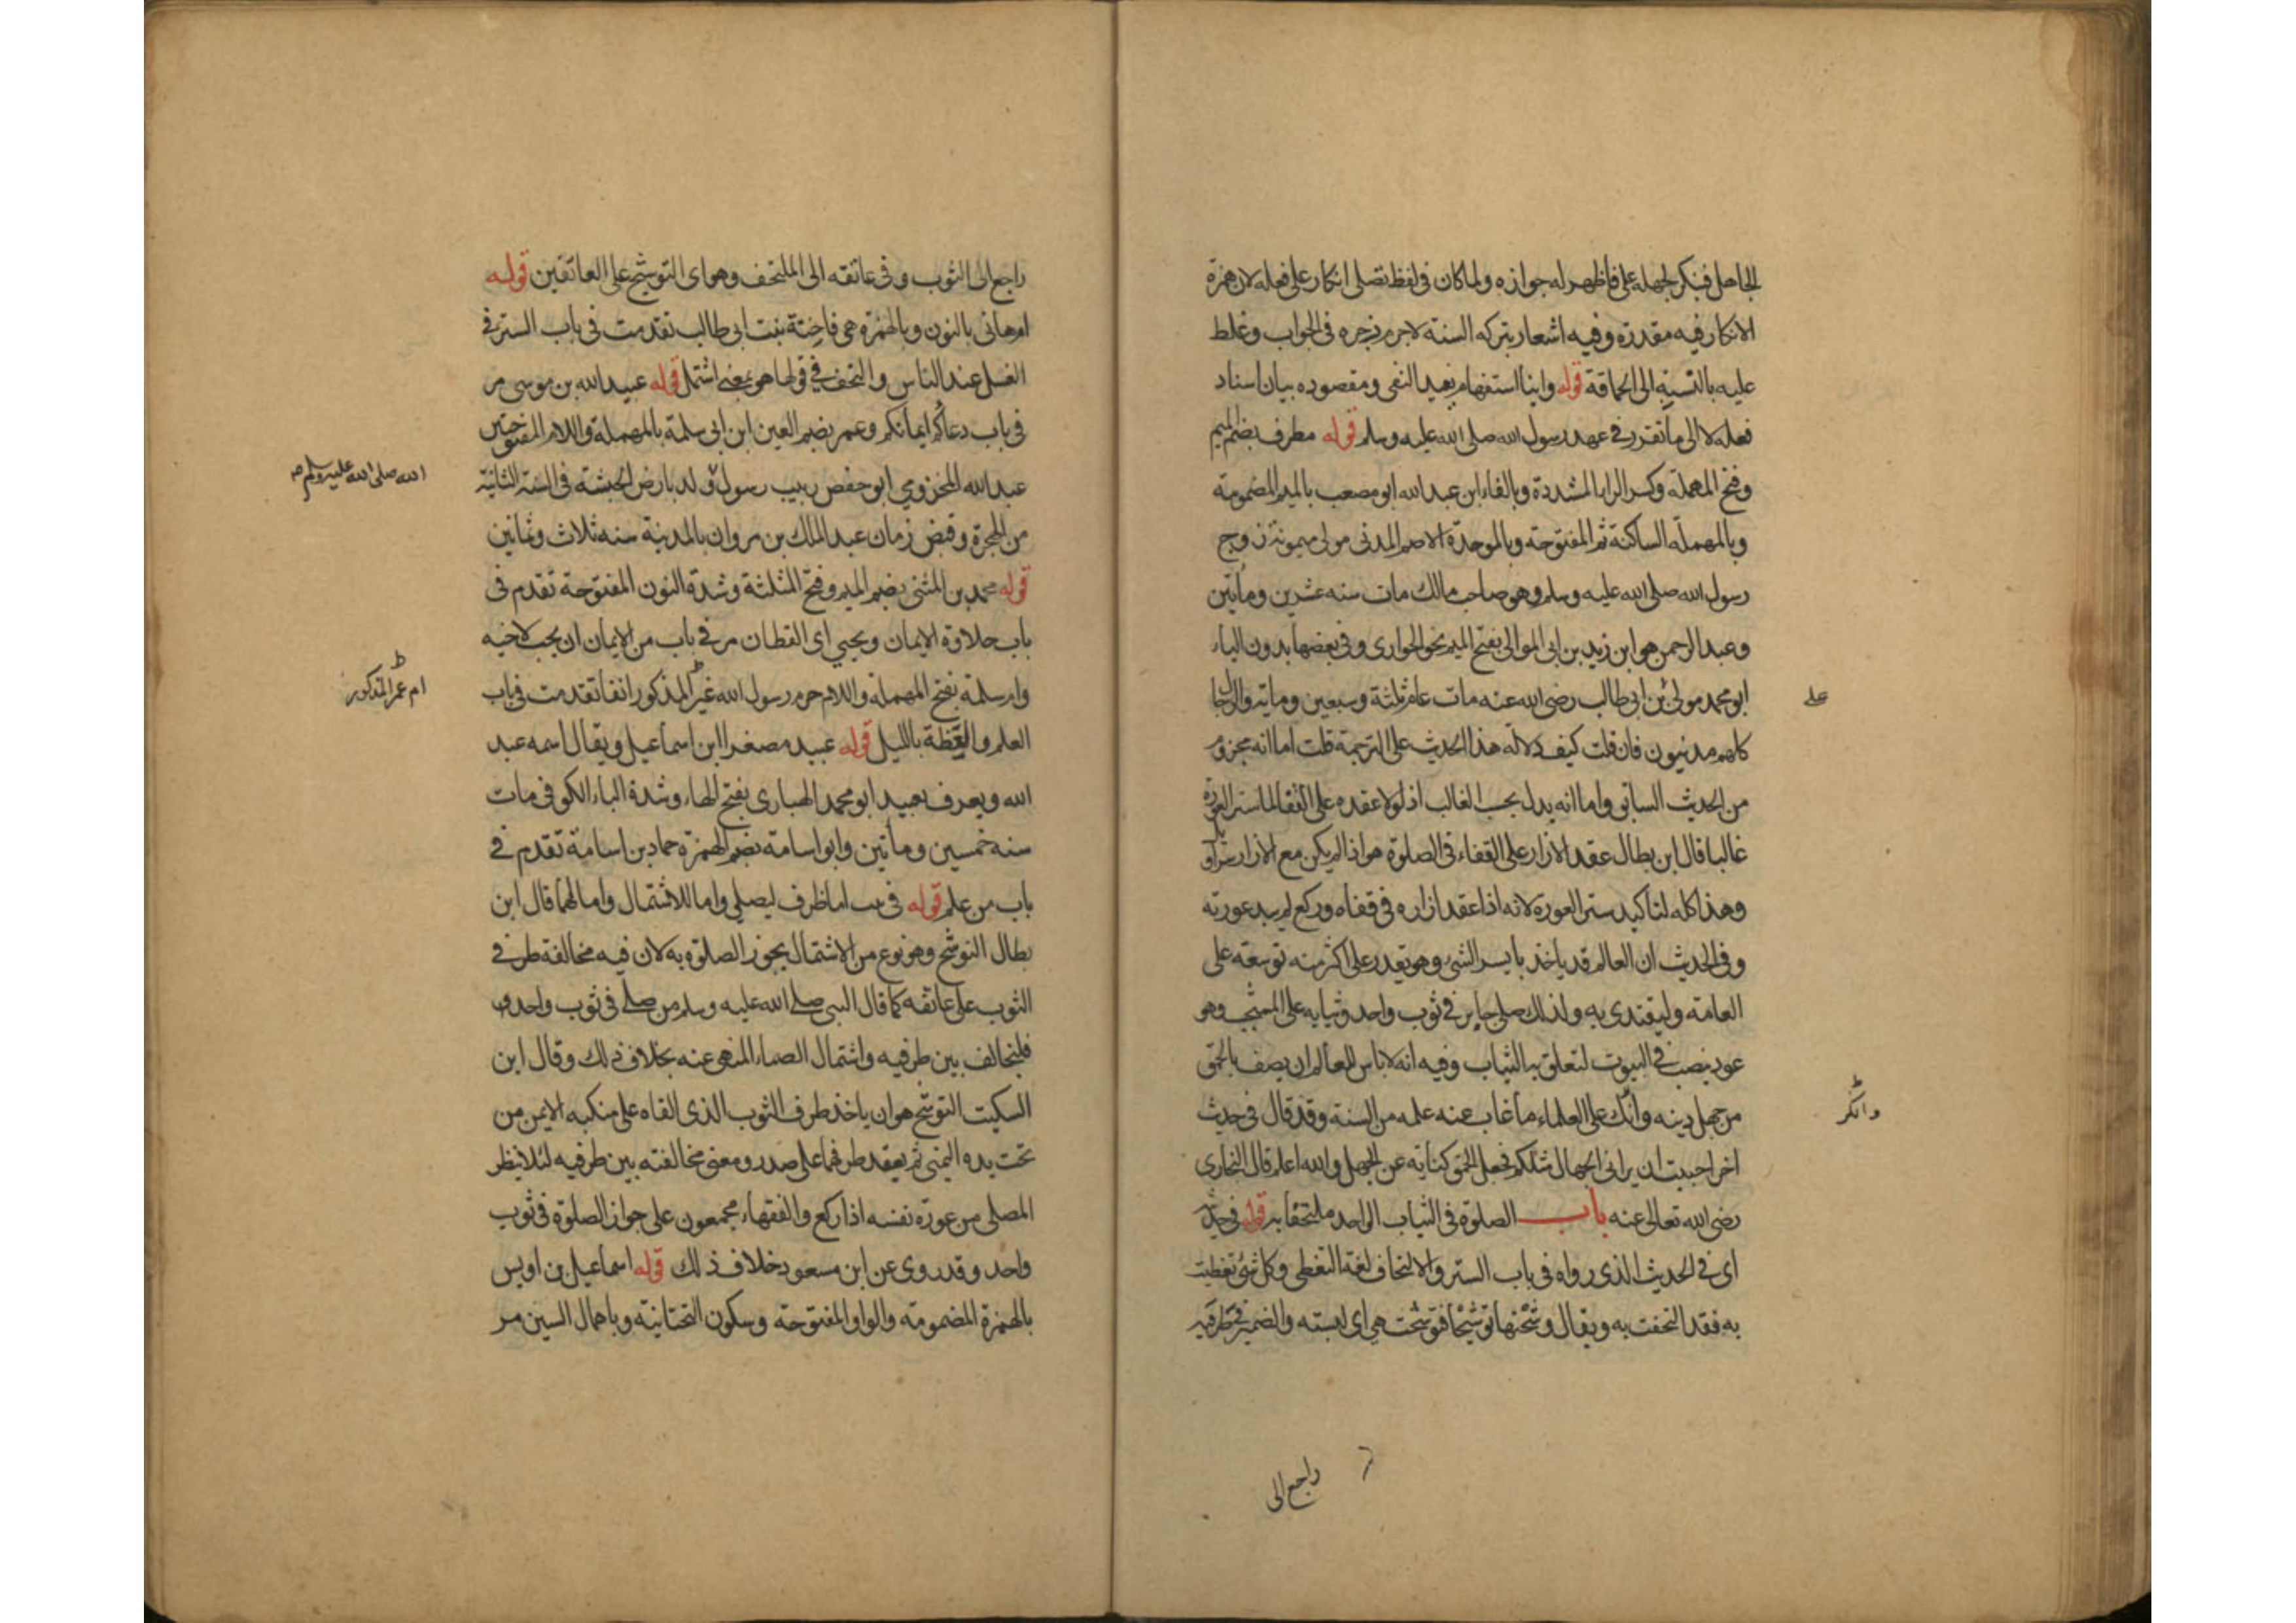 الجاهل فينكر لجهله على فاظهر له جوازه ولما كان في لفظ تصلى انكار على فعله لان همزة
الانكار فيه مقدرة وفيه اشعار بتركه السنة لاجرم زجره في الجواب وغلط
عليه بالنسبة الى الحماقة قوله واينا استفهام يفيد النفى ومقصوده بيان اسناد
فعله لا الى ما تقرر في عهد رسول الله صلى الله عليه وسلم قوله مطرف بضم الميم
وفتح المهملة وكسر الراء المشددة وبالفاء ابن عبد الله ابو مصعب بالميم المضمومة
وبالمهملة الساكنة ثم المفتوحة وبالموحدة الاصم المدنى مولى ميمونة زوج
رسول الله صلى الله عليه وسلم وهو صاحب مالك مات سنه عشرين ومأتين
وعبد الرحمن هو ابن زيد بن ابى الموالى بفتح الميم نحو الجوارى وفى بعضها بدون الياء
ابو محمد مولى بن ابى طالب رضى الله عنه مات عام ثلثة وسبعين ومايه والرجال
على
كلهم مدنيون فان قلت كيف دلالة هذا الحديث على الترجمة قلت اما انه مجزوم
من الحديث السابق واما انه يدل بحسب الغالب اذ لولا عقده على القفا لما ستر العورة
غالبا قال ابن بطال عقد الازار على القفاء فى الصلوة هو اذا لم يكن مع الازار سراويل
وهذا كله لتاكيد ستر العورة لانه اذا عقد ازاره فى قفاه وركع لم يبد عورته
وفى الحديث ان العالم قد ياخذ بايسر الشئ وهو يقدر على اكثر منه توسعة على
العامة وليقتدى به ولذلك صلى جابر فى ثوب واحد وثيابه على المشجب وهو
عود ينصب فى البيوت لتعلق به الثياب وفيه انه لا باس للعالم ان يصف بالحمق
من جهل دينه وانك على العلماء ما غاب عنه علمه من السنة وقد قال فى حديث
وانكر
اخر احببت ان يرانى الجهال مثلكم فجعل الحمق كناية عن الجهل والله اعلم قال البخارى
رضى الله تعالى عنه باب الصلوة فى الثياب الواحد ملتحفا به قوله فى حديثه
اى فى الحديث الذى رواه فى باب الستر والالتحاف لغة التغطى وكل شئ تغطيت
به فقد التحفت به ويقال وشحتها توشيحا فتوشحت هى اى لبسته والضمير فى طرفيه
راجع الى
راجع الى الثوب وفى عاتقه الى الملتحف وهو اى التوشيح على العاتقين قوله
ام هانى بالنون وبالهمزة هى فاختة بنت ابى طالب تقدمت فى باب الستر فى
الغسل عند الناس والتحف فى قولها هو بمعنى اشتمل قوله عبيد الله بن موسى مر
فى باب دعاؤكم ايمانكم وعمر بضم العين ابن ابى سلمة بالمهملة واللام المفتوحتين
عبد الله المخزومي ابو حفص ربيب رسول ولد بارض الحبشة فى السنة الثانية
الله صلى الله عليه وسلم
من الهجرة وقبض زمان عبد الملك بن مروان بالمدينة سنه ثلاث وثمانين
قوله محمد بن المثنى بضم الميم وفتح المثلثة وشدة النون المفتوحة تقدم فى
باب حلاوة الايمان ويحيي اى القطان مر فى باب من الايمان ان يحب لاخيه
وام سلمة بفتح المهملة واللام حرم رسول الله غير المذكور انفا تقدمت فى باب
ام عمر المذكور
العلم والعظة بالليل قوله عبيد مصغرا ابن اسماعيل ويقال اسمه عبد
الله ويعرف بعبيد ابو محمد الهبارى بفتح الهاء وشدة الباء الكوفى مات
سنه خمسين ومأتين وابو اسامة بضم الهمزة حماد بن اسامة تقدم فى
باب من علم قوله فى بيت اما ظرف ليصلى واما للاشتمال واما لهما قال ابن
بطال التوشح وهو نوع من الاشتمال يجوز الصلوة به لان فيه مخالفة طرفى
الثوب على عاتقه كما قال النبى صلى الله عليه وسلم من صلى فى ثوب واحد
فليخالف بين طرفيه واشتمال الصماء المنهى عنه بخلاف ذلك وقال ابن
السكيت التوشح هو ان ياخذ طرف الثوب الذى القاه على منكبه الايمن من
تحت يده اليمنى ثم يعقد طرفهما على صدر ومعنى مخالفته بين طرفيه لئلا ينظر
المصلى من عورة نفسه اذا ركع والفقهاء مجمعون على جواز الصلوة فى ثوب
واحد وقد روى عن ابن مسعود خلاف ذلك قوله اسماعيل بن اويس
بالهمزة المضمومة والواو المفتوحة وسكون التحتانية وباهمال السين مر